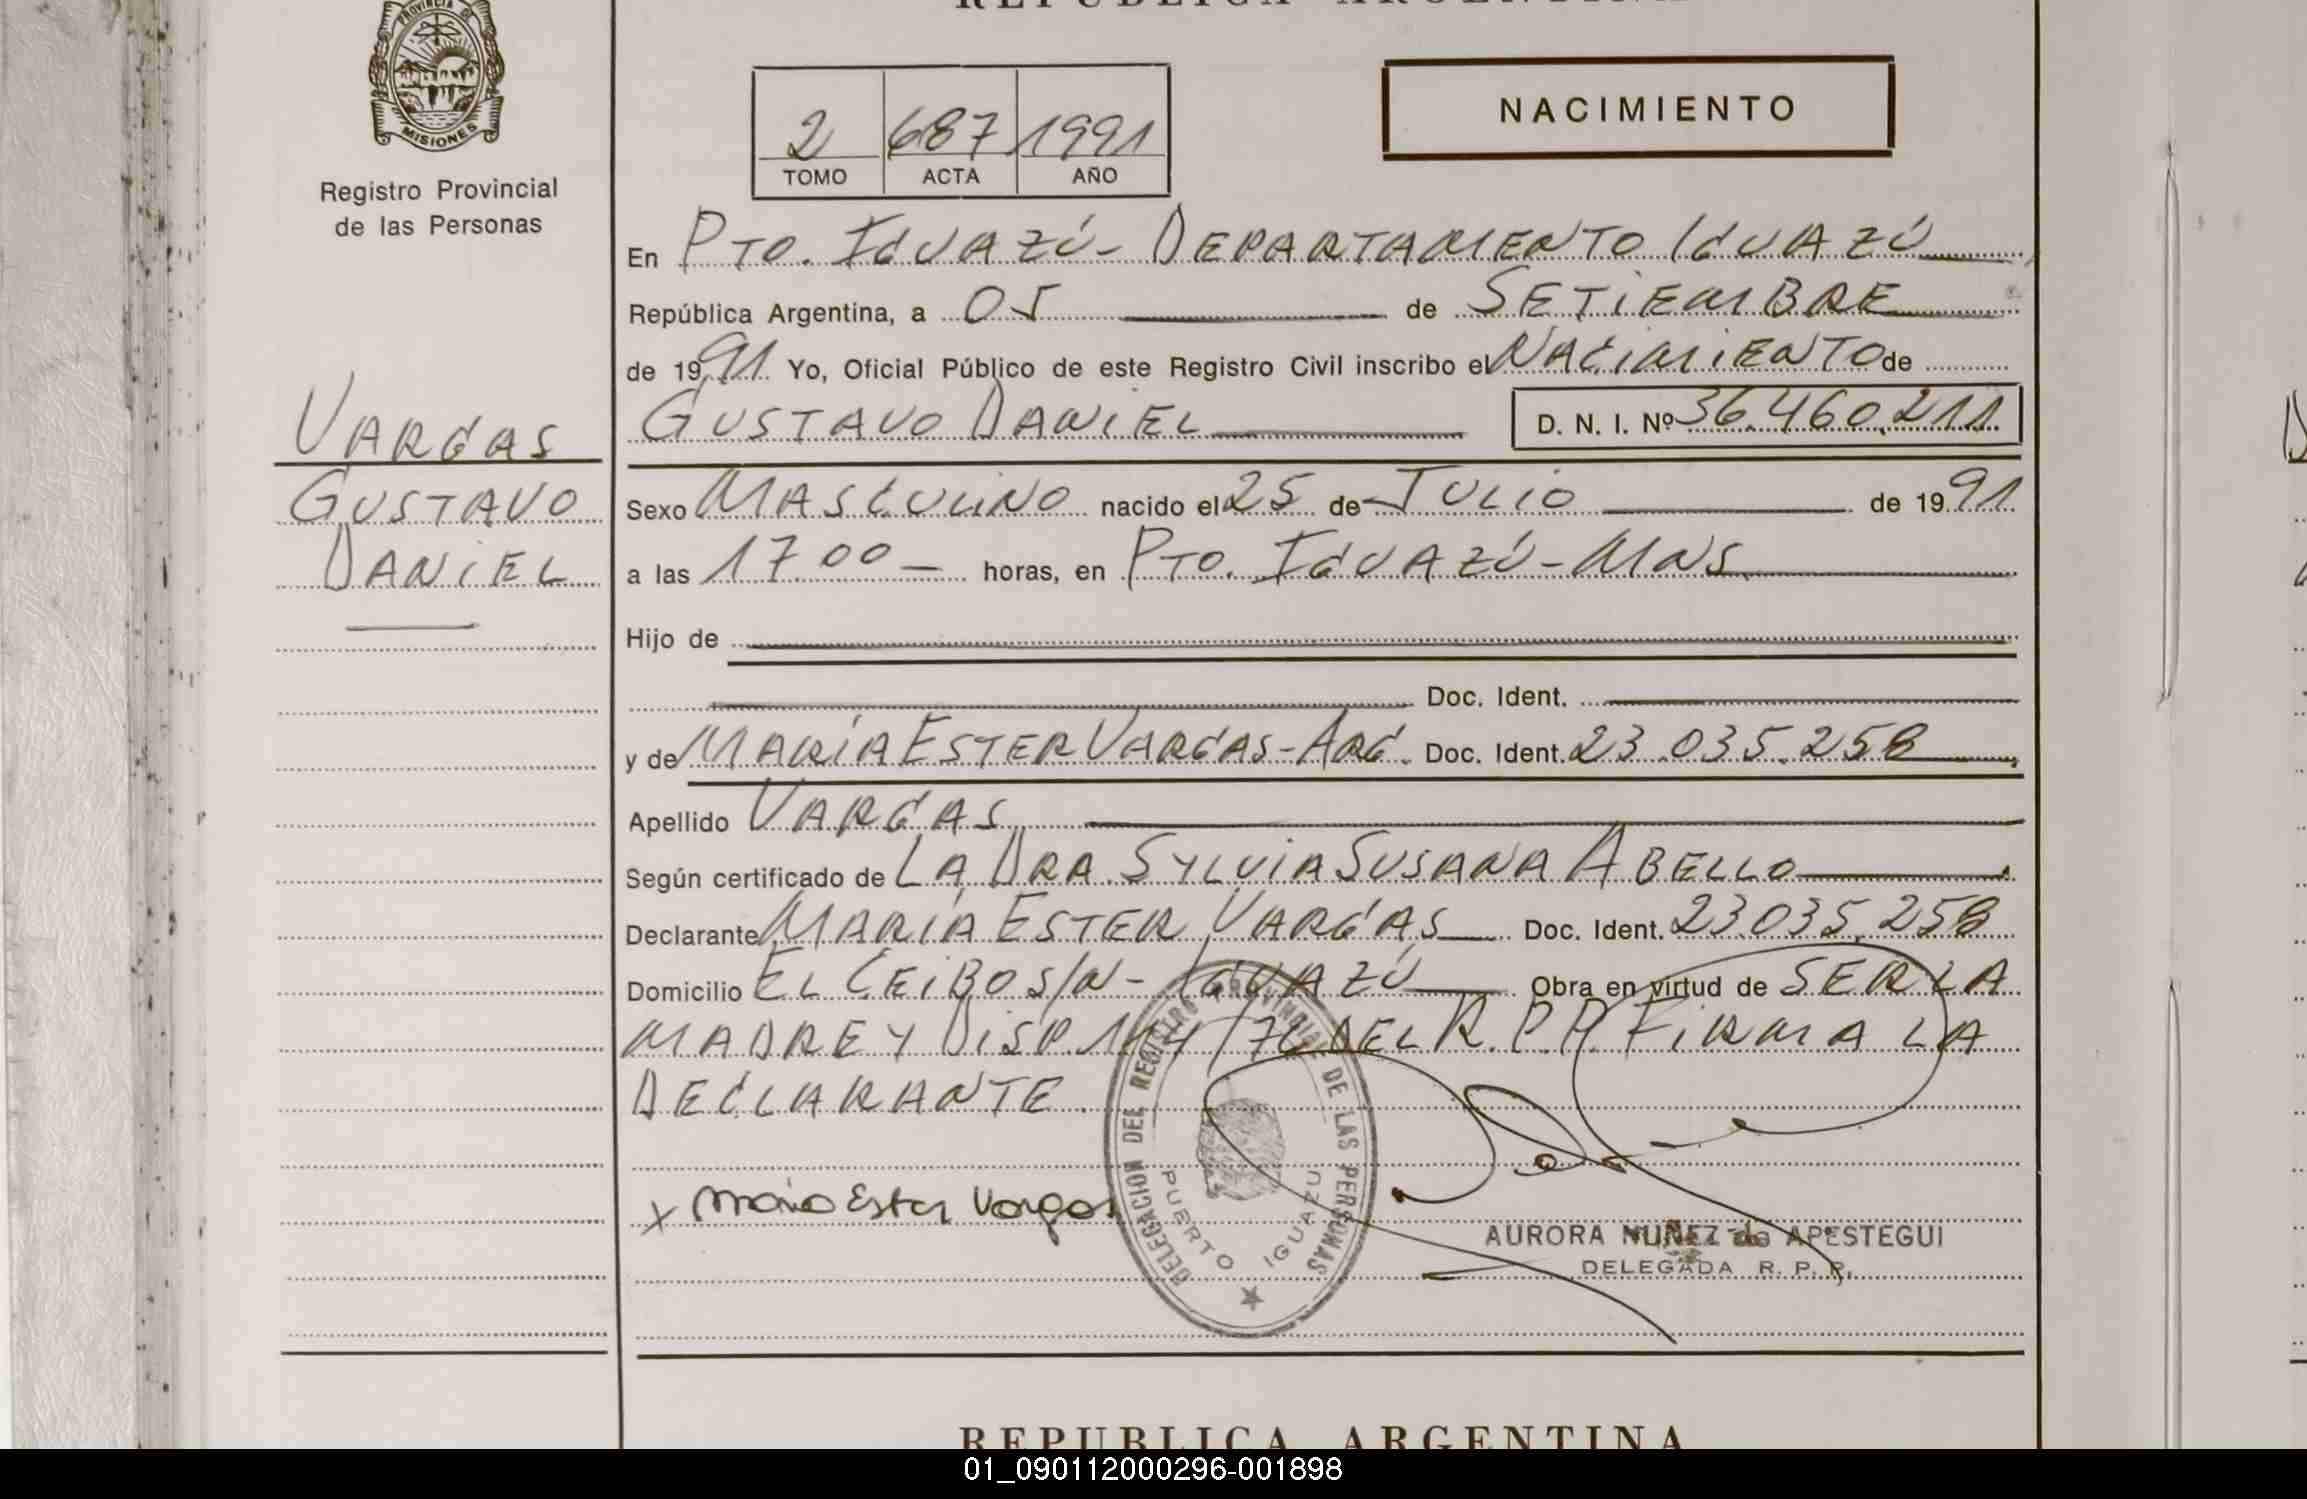 REPUBLICA ARGENTINA
PROVINCIA DE
MISIONES
Registro Provincial
de las Personas
NACIMIENTO
2 687 1991
TOMO ACTA AÑO
En PTO. IGUAZÚ - DEPARTAMENTO IGUAZÚ
República Argentina, a 05 de SETIEMBRE
de 1991 Yo, Oficial Público de este Registro Civil inscribo el NACIMIENTO de
GUSTAVO DANIEL D. N. I. Nº 36.460.211
VARGAS
GUSTAVO
DANIEL
Sexo MASCULINO nacido el 25 de JULIO de 1991
a las 17.00 horas, en PTO. IGUAZÚ - MNS
Hijo de
Doc. Ident.
y de MARÍA ESTER VARGAS - ARG. Doc. Ident. 23.035.258
Apellido VARGAS
Según certificado de LA DRA. SYLVIA SUSANA ABELLO
Declarante MARÍA ESTER VARGAS Doc. Ident. 23.035.258
Domicilio EL CEIBO S/N - IGUAZÚ Obra en virtud de SER LA
MADRE Y DISP. 114/76 DEL R.P.P. FIRMA LA
DECLARANTE.
x Maria Ester Vargas
DELEGACION DEL REGISTRO PROVINCIAL DE LAS PERSONAS
PUERTO IGUAZU
AURORA NUÑEZ de APESTEGUI
DELEGADA R. P. P.
REPUBLICA ARGENTINA
01_090112000296-001898